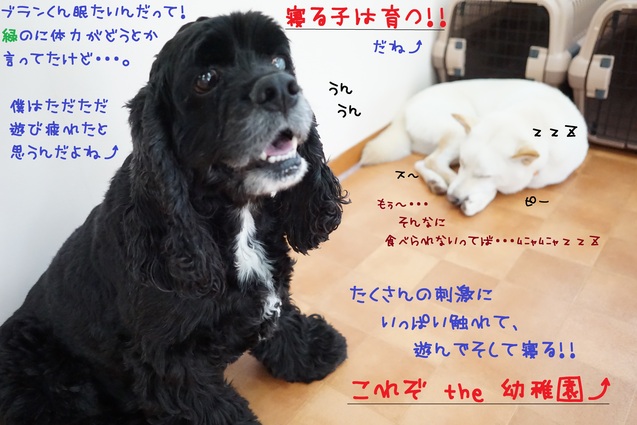 ブランくん眠たいんだって!
緑のに体力がどうとか
言ってたけど・・・。
僕はただただ
遊び疲れたと
思うんだよね⤴
寝る子は育つ!!
だね⤴
うん
うん
zzz
スー
ぴー
もぅ〜・・・
そんなに
食べられないってば・・・ムニャムニャzzz
たくさんの刺激に
いっぱい触れて、
遊んでそして寝る!!
これぞ the 幼稚園⤴